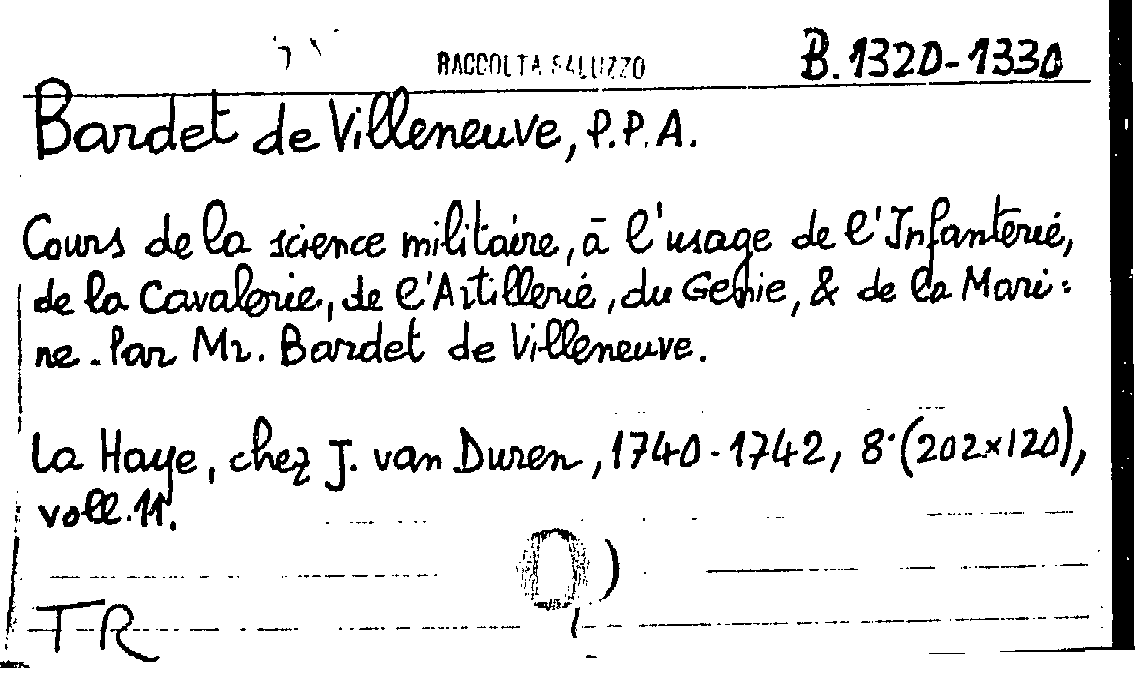 RACCOLTA SALUZZO B.1320-1330
Bardet de Villeneuve, P.P.A.
Cours de la science militaire, à l'usage de l'Infanterié,
de la Cavalerie, de l'Artillerié, du Genie, & de la Mari=
ne. Par Mr. Bardet de Villeneuve.
La Haye, chez J. van Duren, 1740-1742, 8° (202x120),
voll. 11.
TR